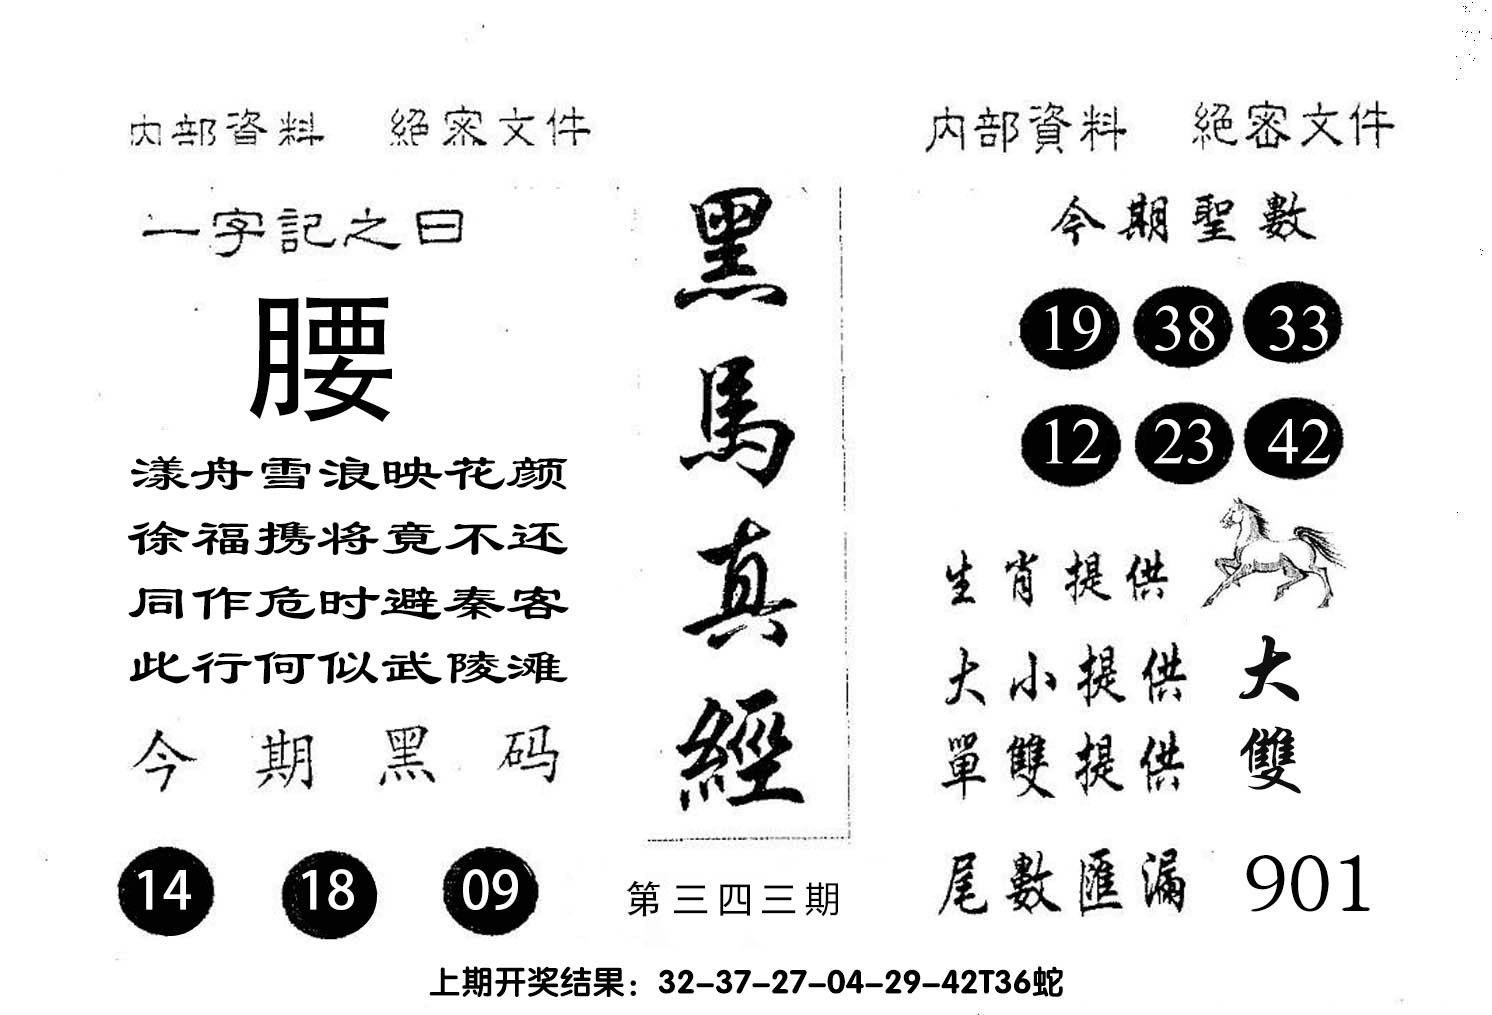 内部資料　絕密文件
一字記之曰
腰
漾舟雪浪映花颜
徐福携将竟不还
同作危时避秦客
此行何似武陵滩
今期黑码
14 18 09
黑馬真經
第三四三期
内部資料　絕密文件
今期聖數
19 38 33
12 23 42
生肖提供
大小提供 大
單雙提供 雙
尾數匯漏 901
上期开奖结果：32-37-27-04-29-42T36蛇